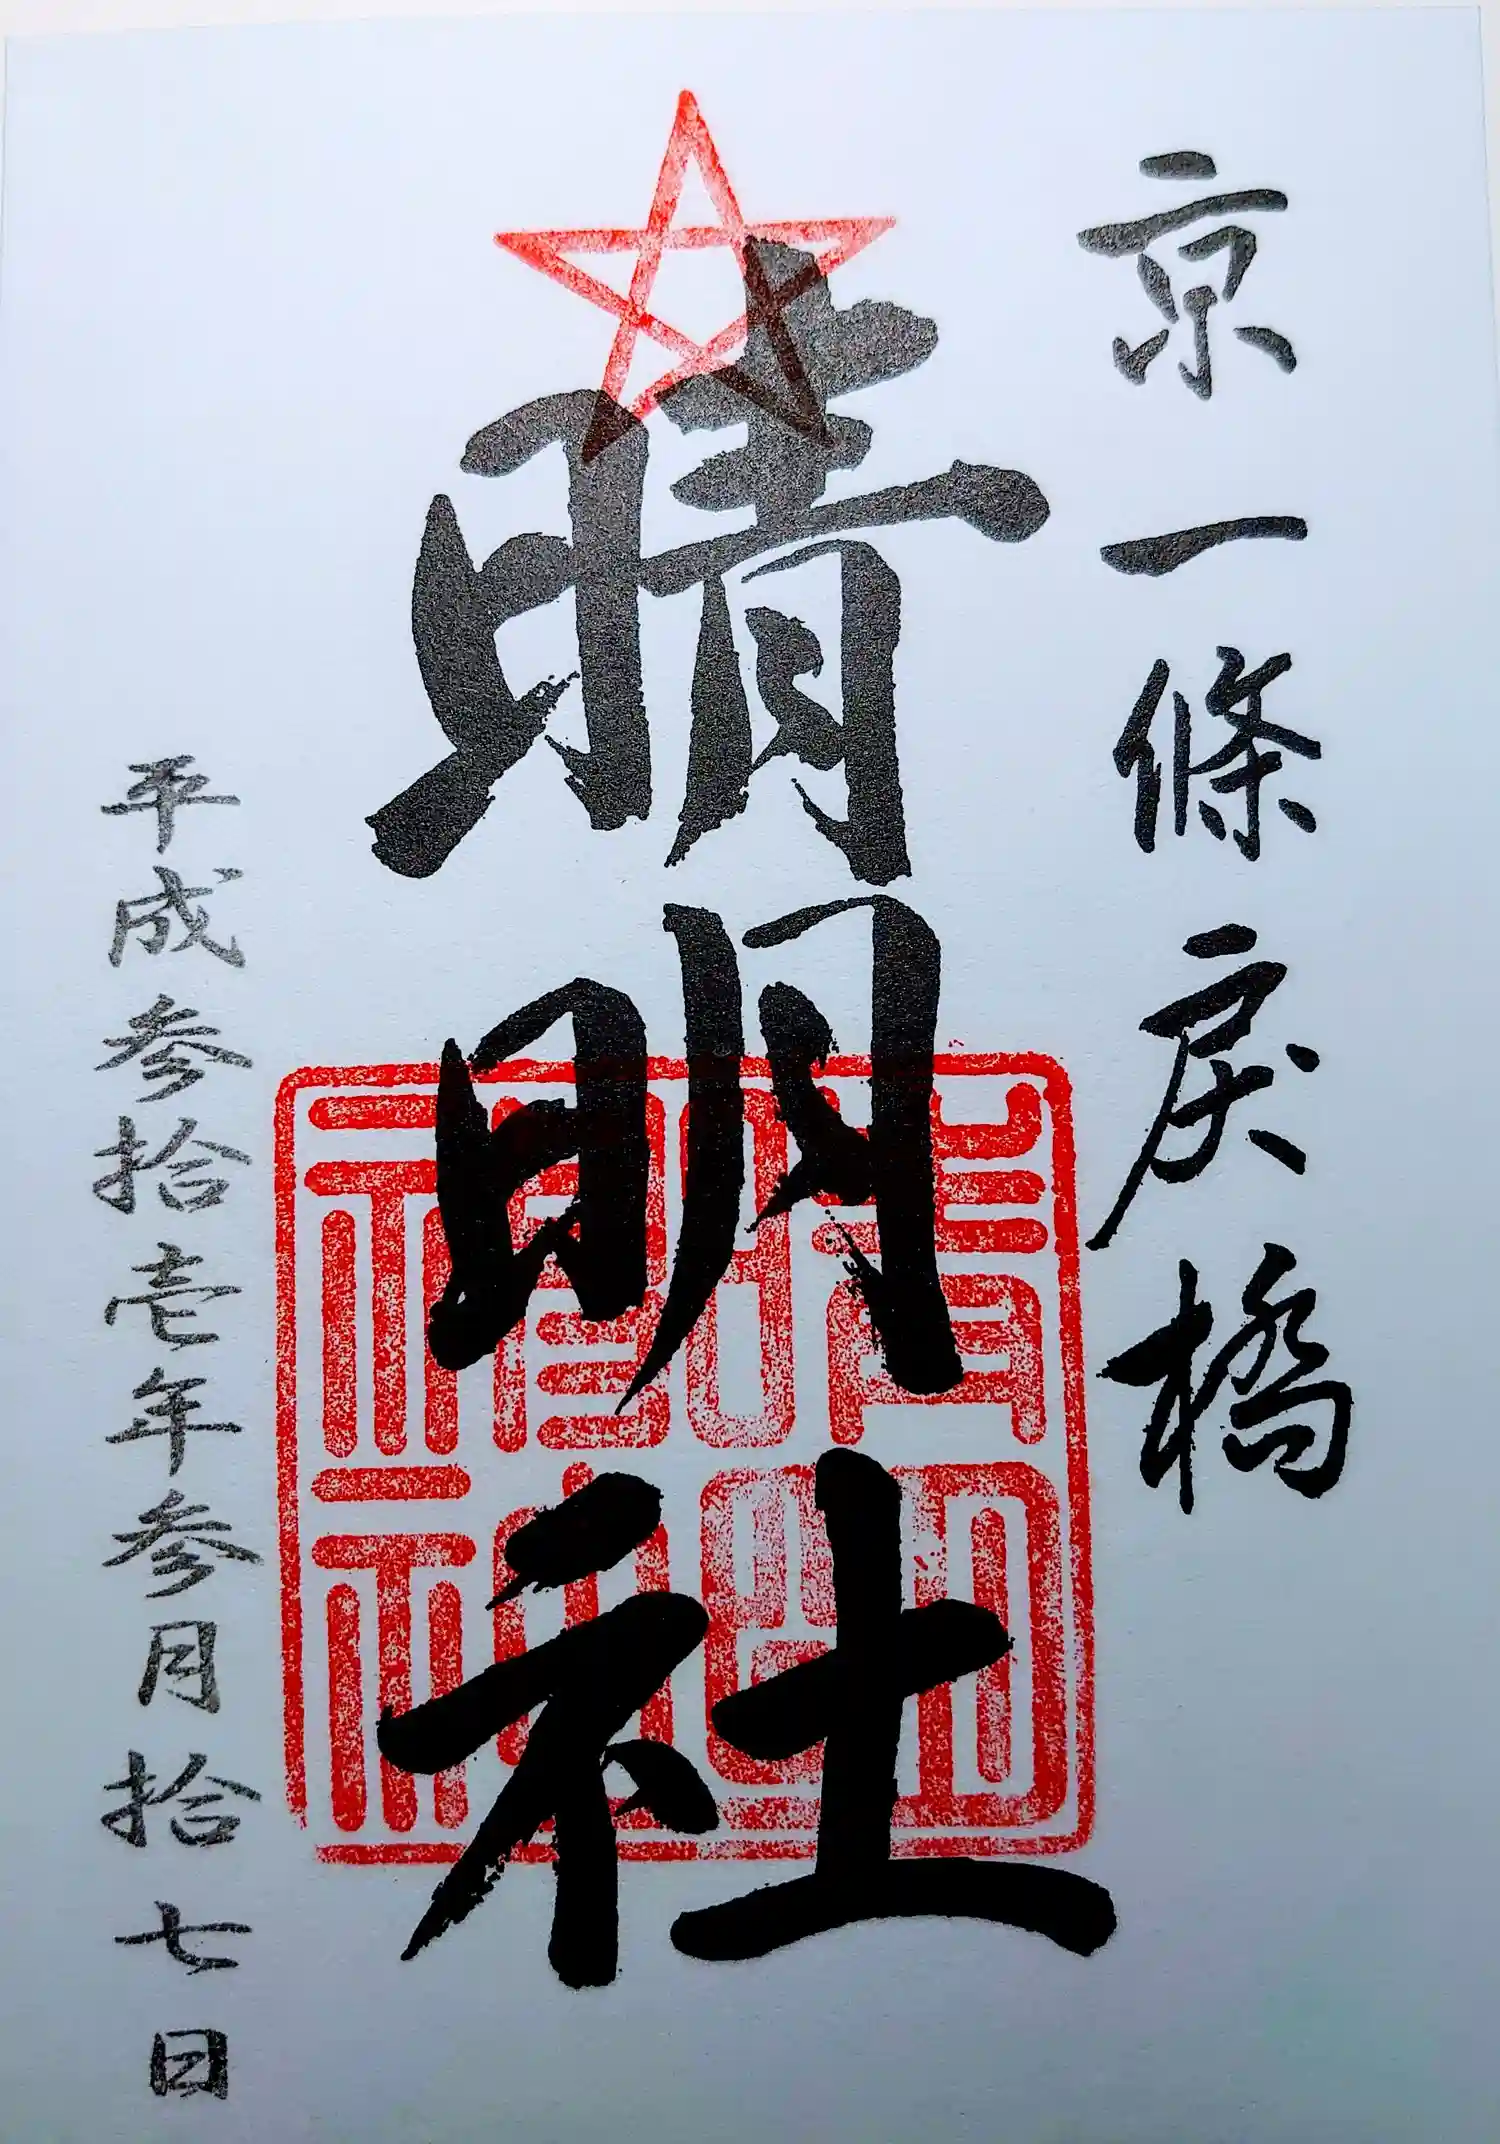 京一條戻橋
晴明社
晴明神社
平成参拾壱年参月拾七日